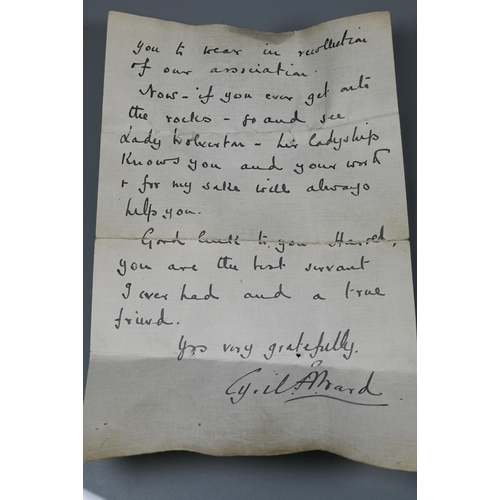 you to wear in recollection
of our association.
Now - if you ever get onto
the rocks - go and see
Lady Wolverton - her ladyship
knows you and your worth
& for my sake will always
help you.
Good luck to you Harold,
you are the best servant
I ever had and a true
friend.
Yrs very gratefully.
Cyril Ward